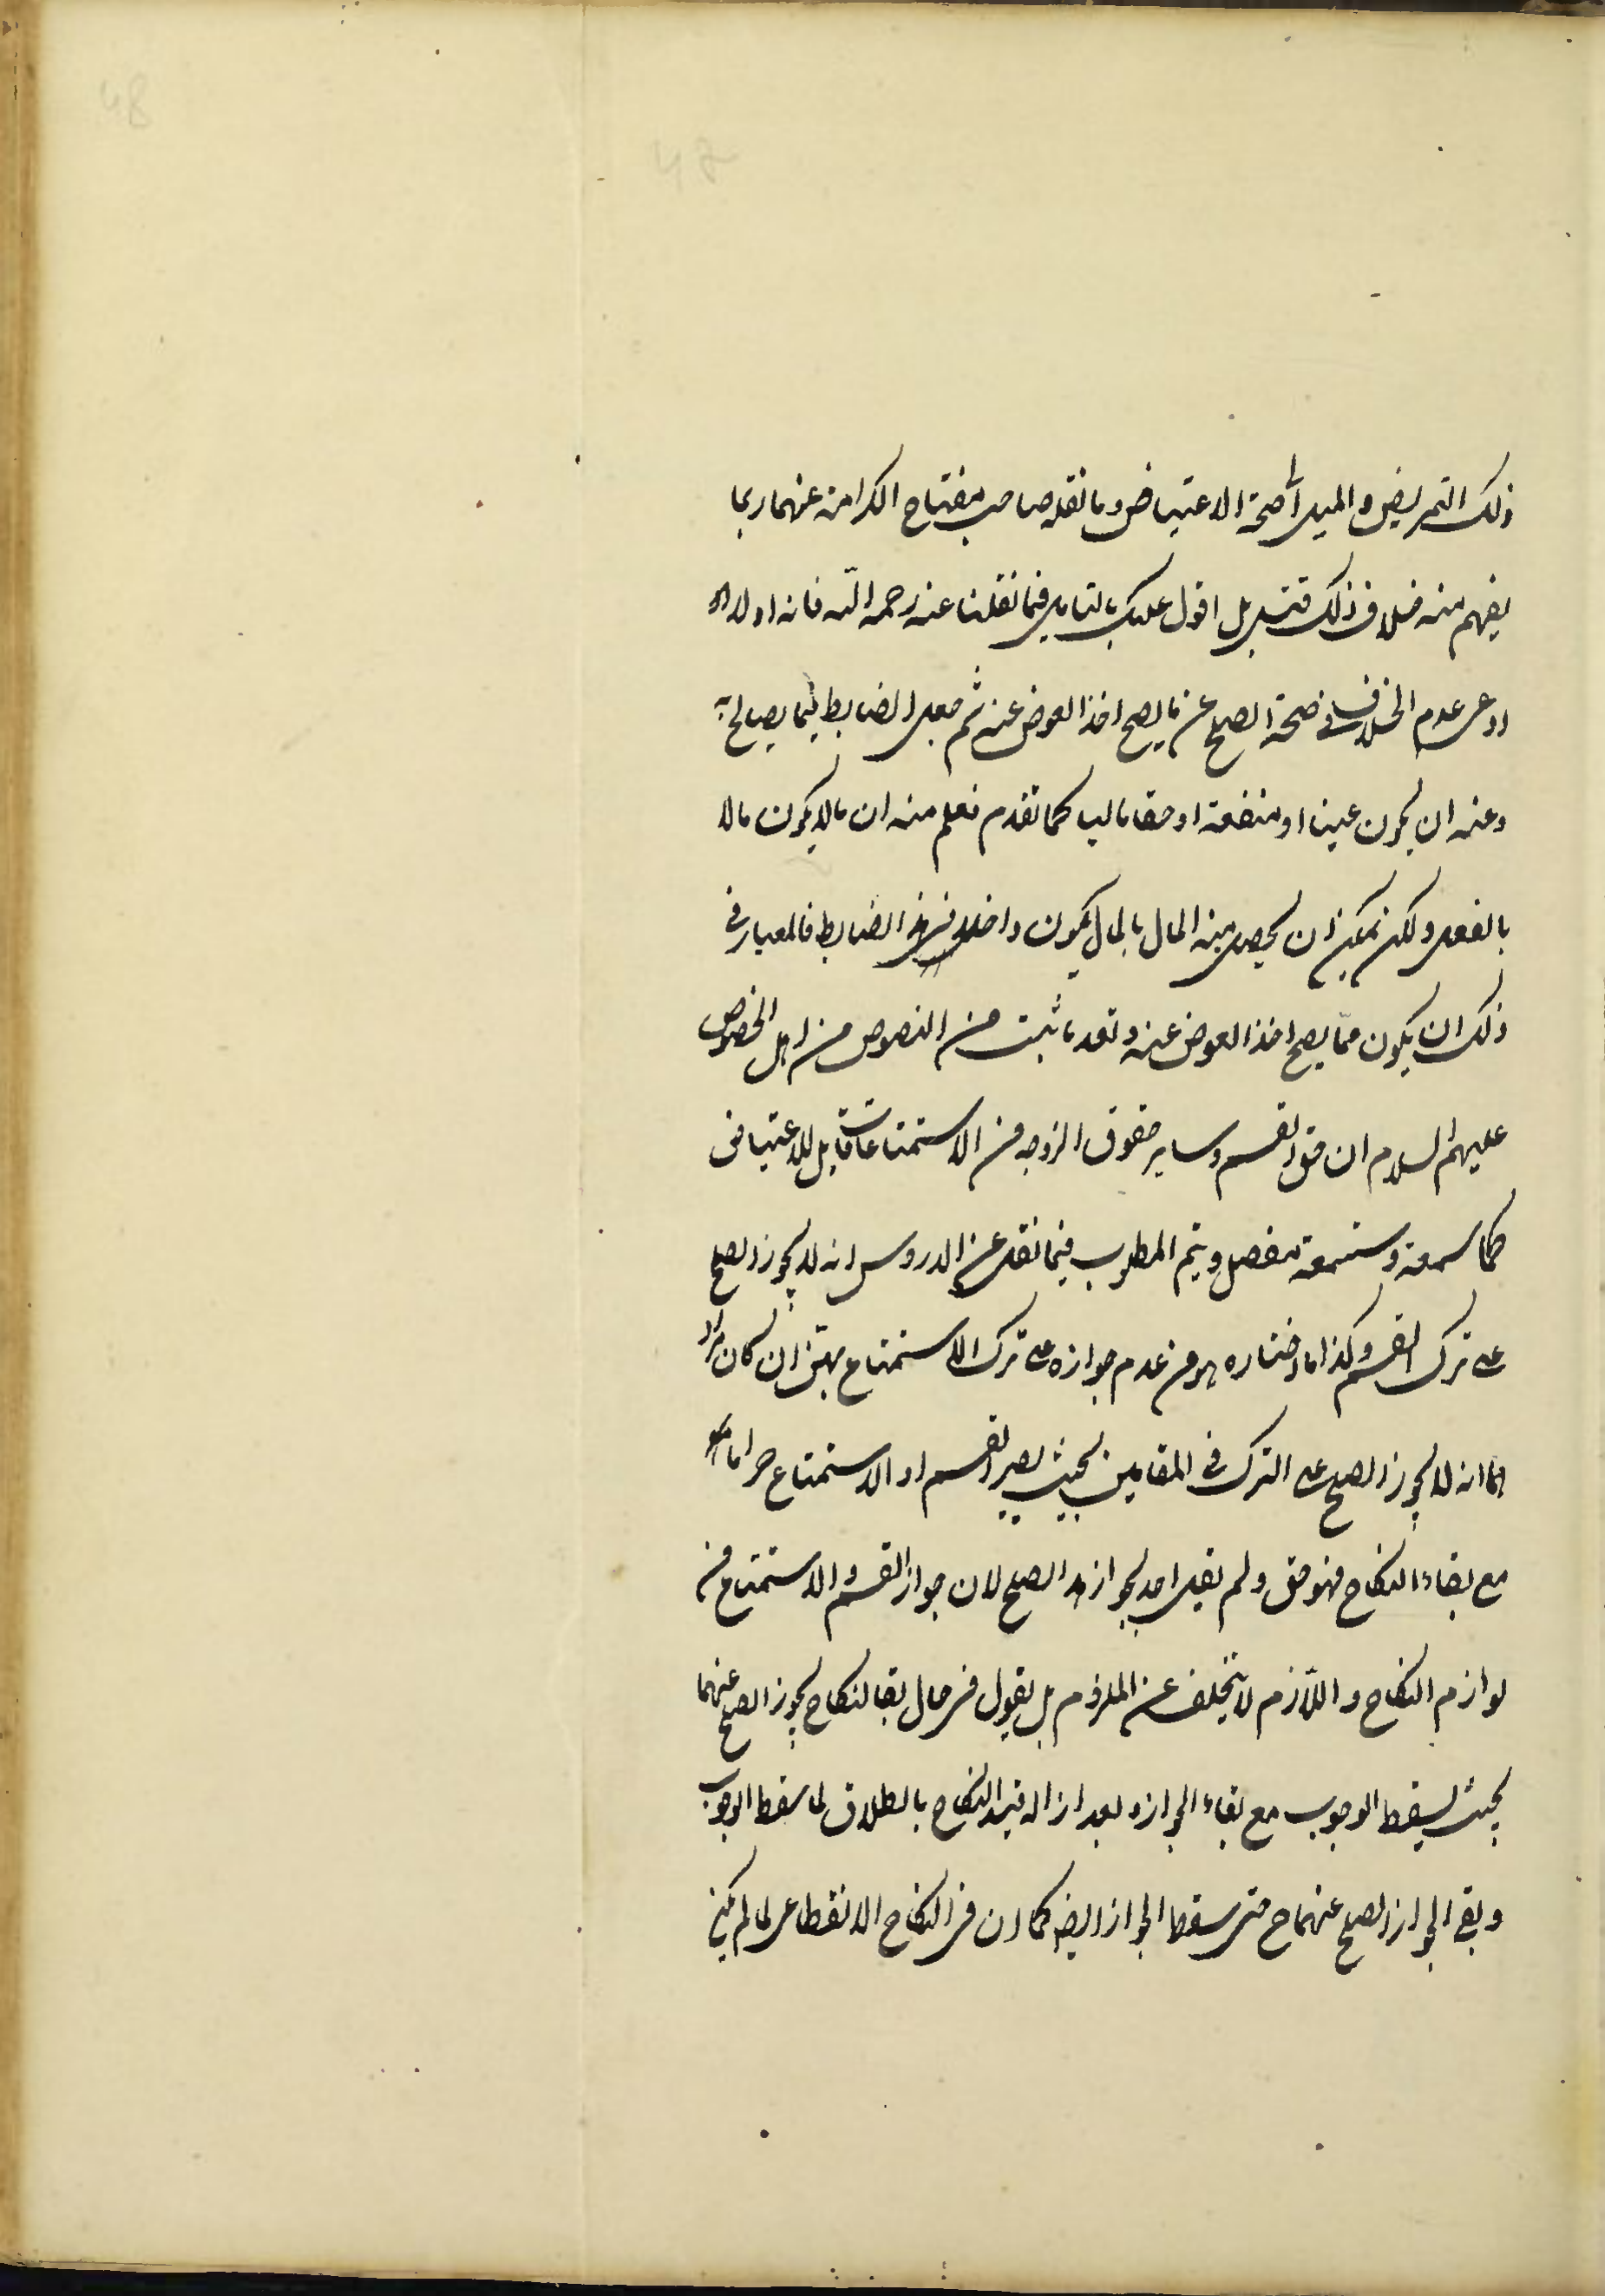 48
47
ذلك التمريض والميل الى صحة الاعتياض وما نقله صاحب مفتاح الكرامة عنهما ربما
يفهم منه خلاف ذلك فتدبر بل اقول عليك بالتامل فيما نقلنا عنه رحمه اللّه فانه اولا
ادعى عدم الخلاف فى صحة الصلح عن ما يصح اخذ العوض عنه ثم جعل الضابط فيما يصالح به
وعنه ان يكون عينا او منفعة او حقا ماليا كما تقدم فعلم منه ان ما لا يكون مالا
بالفعل ولكن يمكن ان يحصل منه المال بالمال يكون داخلا فى الضابط فالمعيار فى
ذلك ان يكون ممّا يصح اخذ العوض عنه وقد ثبت من النصوص من اهل الخصوص
عليهم السلام ان حق القسم وساير حقوق الزوجه من الاستمتاعات قابل للاعتياض
كما سمعته وستسمعه مفصلا ويتم المطلوب فيما نقل عن الدروس انه لا يجوز الصلح
على ترك القسم وكذا ما اختاره هو من عدم جوازه على ترك الاستمتاع بهنّ ان كان مراد
هما انه لا يجوز الصلح على الترك فى المقامين بحيث يصير القسم او الاستمتاع حراما
مع بقاء النكاح فهو حق ولم يقل احد بجواز هذا الصلح لان جواز القسم والاستمتاع من
لوازم النكاح واللّازم لا يتخلف عن الملزوم بل يقول فى حال بقا النكاح يجوز الصلح عنهما
بحيث يسقط الوجوب مع بقاء الجواز وبعد ازالة قيد النكاح بالطلاق لما سقط الوجوب
وبقى الجواز الصلح عنهما ح حتى سقط الجواز ايضا كما ان فى النكاح الانقطاعى لما لم يكن